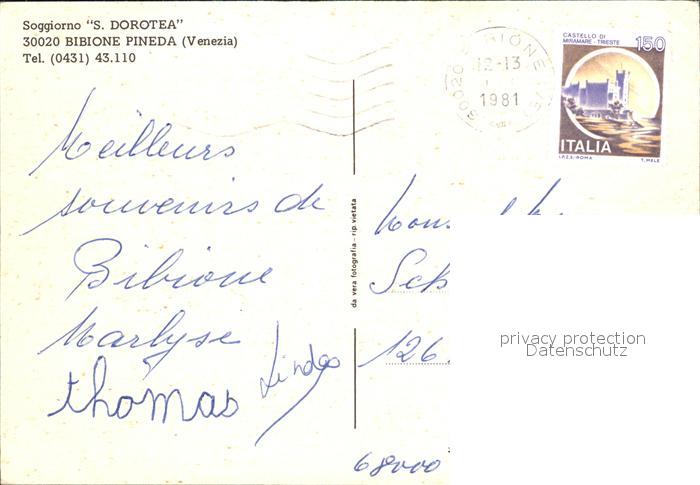 Soggiorno "S. DOROTEA"
30020 BIBIONE PINEDA (Venezia)
Tel. (0431) 43.110
30020 BIBIONE (VE)
12-13
1981
CASTELLO DI
MIRAMARE - TRIESTE
150
ITALIA
I.P.Z.S.-ROMA
T. MELE
Meilleurs
souvenirs de
Bibione
Marlyse
thomas
da vera fotografia - rip. vietata
Sch
126.
68000
privacy protection
Datenschutz